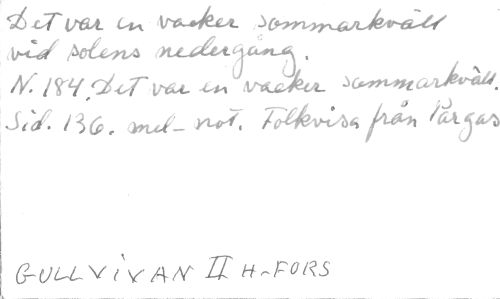 Det var en vacker sommarkväll
vid solens nedergång.
N. 184. Det var en vacker sommarkväll.
Sid. 136. mel-not. Folkvisa från Pargas
GULLVIVAN II H-FORS